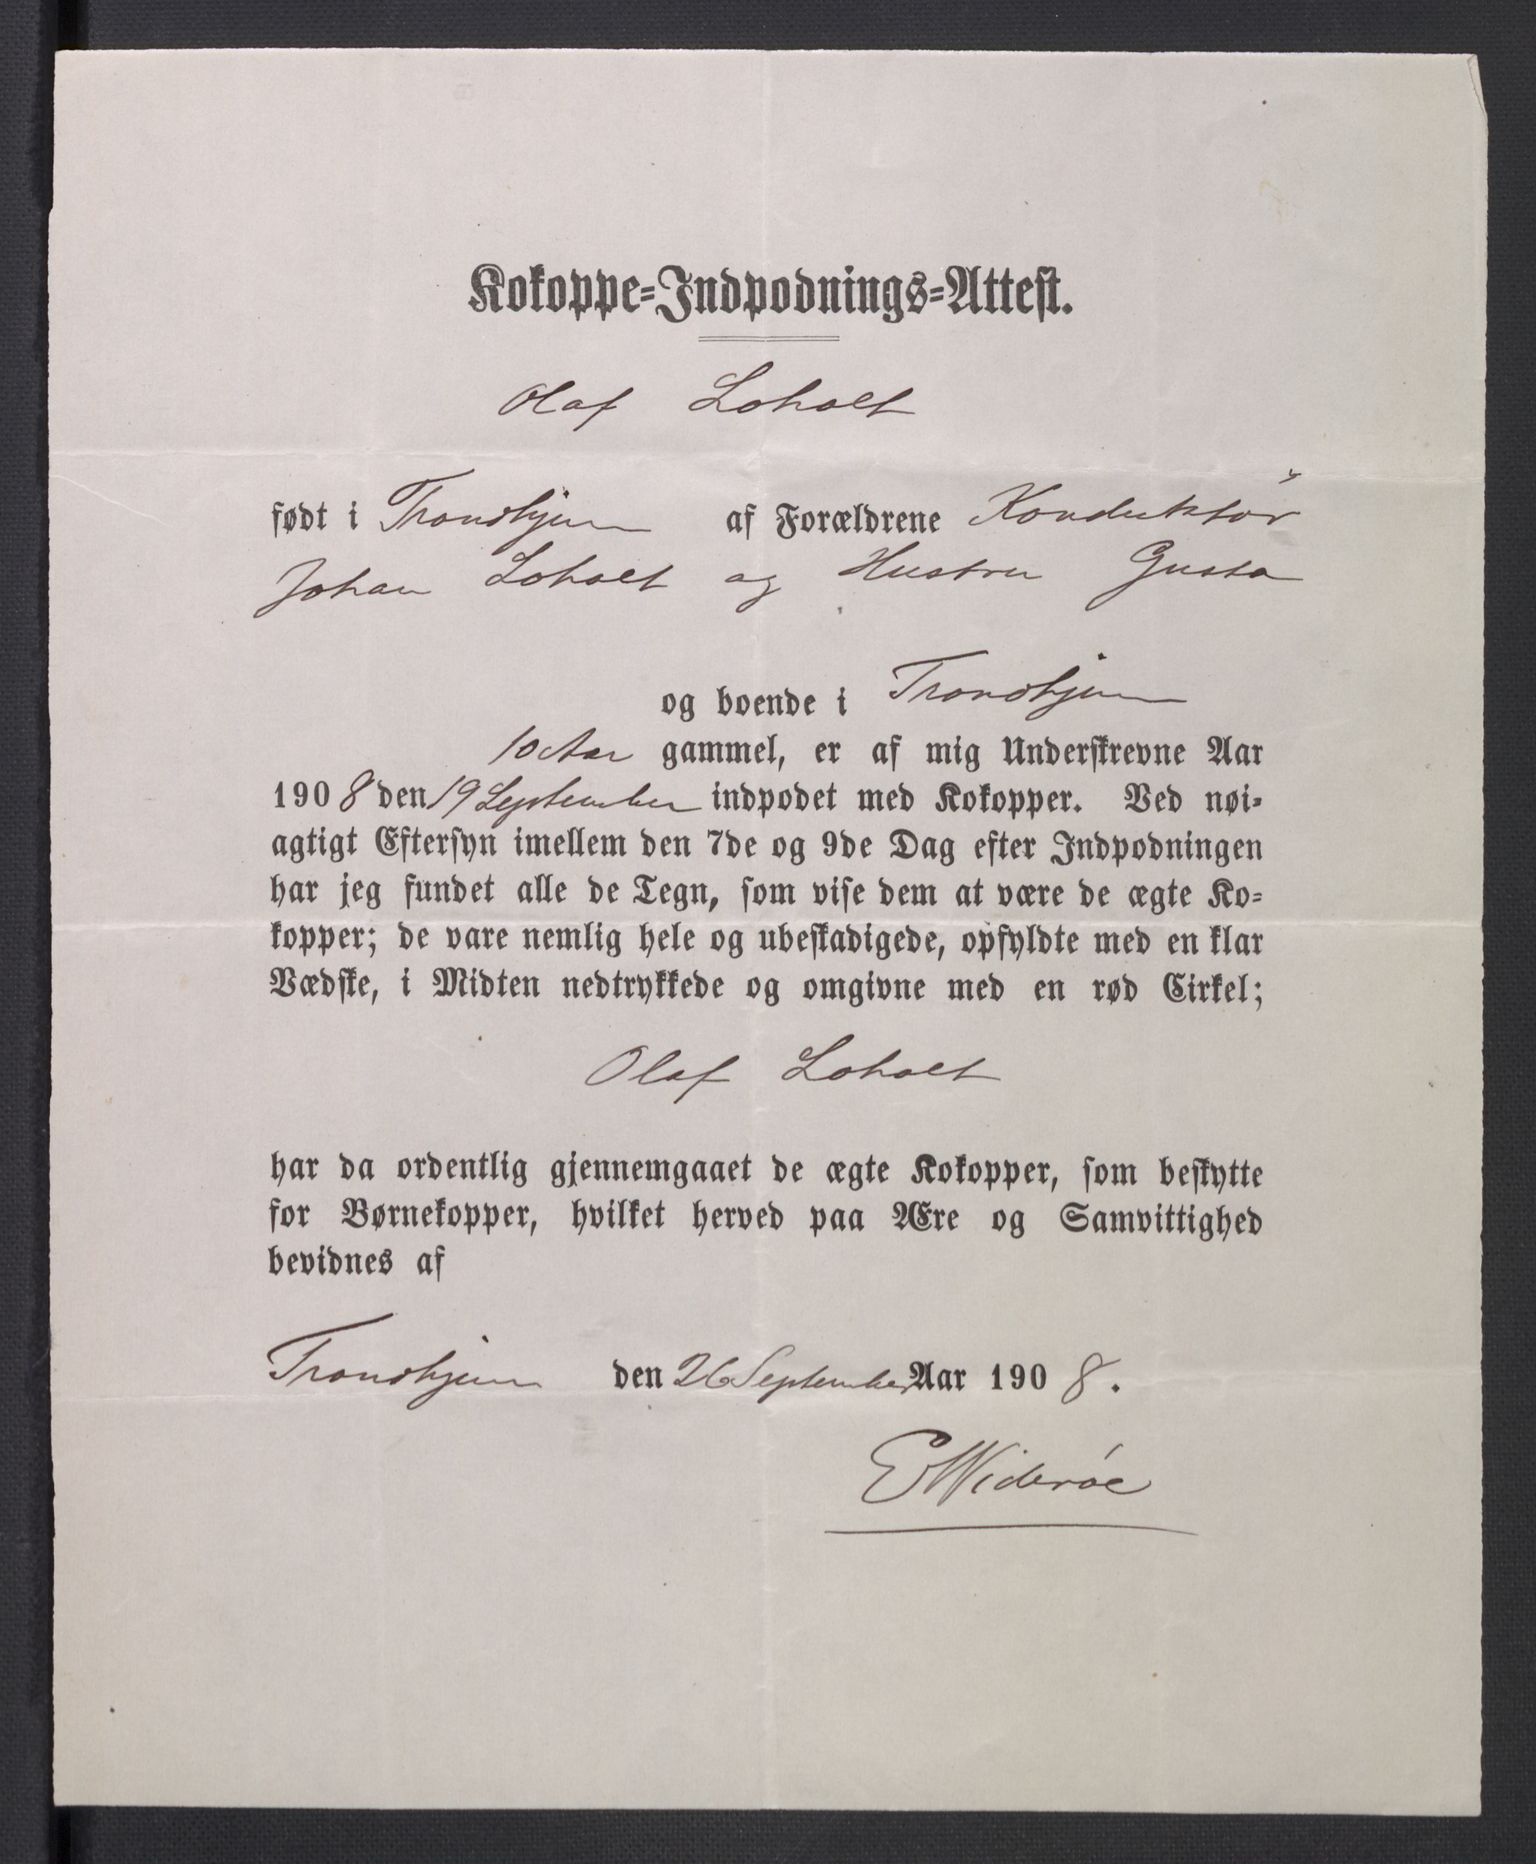 Kokoppe=Indpodnings=Attest.
Olaf Loholt
født i Trondhjem af Forældrene Konduktör
Johan Loholt og Hustru Gusta
og boende i Trondhjem
10 Aar gammel, er af mig Underskrevne Aar
1908 den 19 September indpodet med Kokopper. Ved nøi=
agtigt Eftersyn imellem den 7de og 9de Dag efter Indpodningen
har jeg fundet alle de Tegn, som vise dem at være de ægte Ko=
kopper; de vare nemlig hele og ubeskadigede, opfyldte med en klar
Vædske, i Midten nedtrykkede og omgivne med en rød Cirkel;
Olaf Loholt
har da ordentlig gjennemgaaet de ægte Kokopper, som beskytte
for Børnekopper, hvilket herved paa Ære og Samvittighed
bevidnes af
Trondhjem den 26 September Aar 1908.
E Widerøe